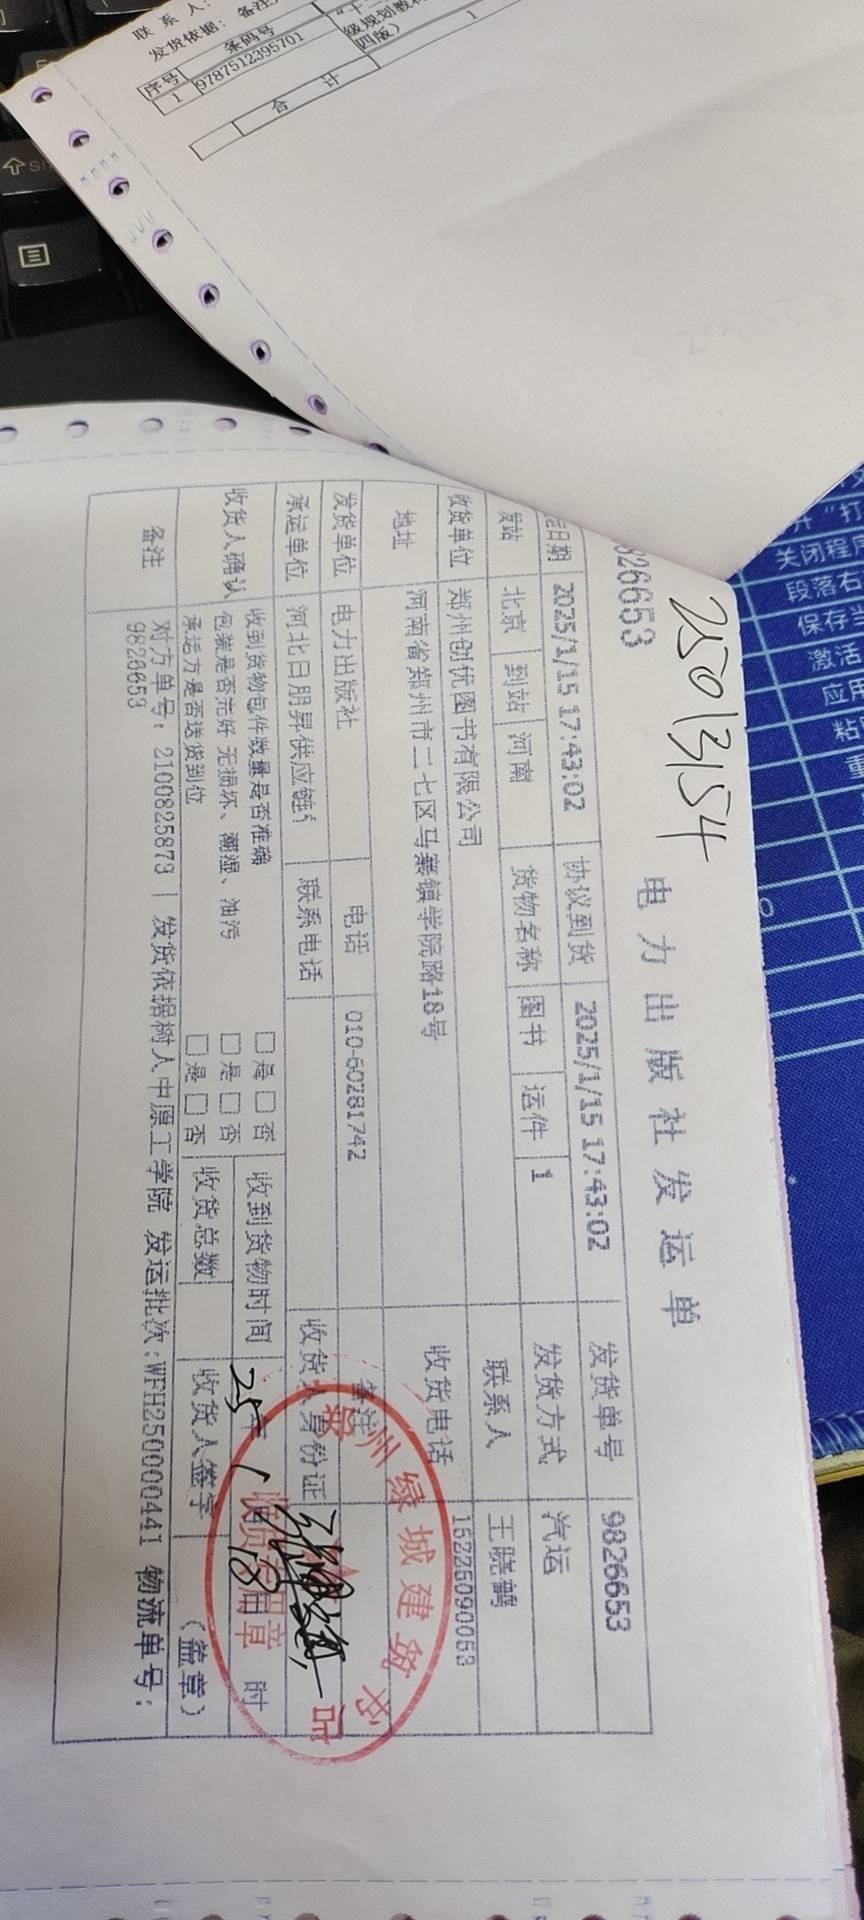 联 系 人：
发货依据：备注
序号 条码号
1 9787512395701 "十 级规划教材 四版） 1
合 计
826653
25013154
电力出版社发运单
日期 2025/1/15 17:43:02 协议到货 2025/1/15 17:43:02 发货单号 9826653
发站 北京 到站 河南 货物名称 图书 运件 1 发货方式 汽运
收货单位 郑州创优图书有限公司 联系人 王晓鹤
地址 河南省郑州市二七区马寨镇学院路18号 收货电话 15225090053
发货单位 电力出版社 电话 010-60281742 备注
承运单位 河北日朋昇供应链 联系电话 收货人身份证
收货人确认 收到货物包件数量是否准确 □是 □否 收到货物时间 25年 1月 18日 时
包装是否完好 无损坏、潮湿、油污 □是 □否
承运方是否送货到位 □是 □否 收货总数 收货人签字 （盖章）
备注 对方单号：2100825873 | 发货依据树人中原工学院 发运批次:WFH250000441 物流单号:
9826653
郑州绿城建筑书
收货专用章
关闭程序
段落右
保存
激活
应用
粘
重